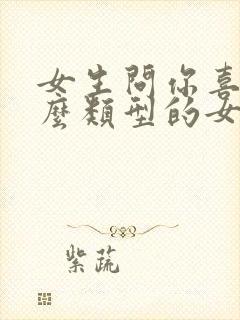 女生問你喜
麼類型的女
紫蔬